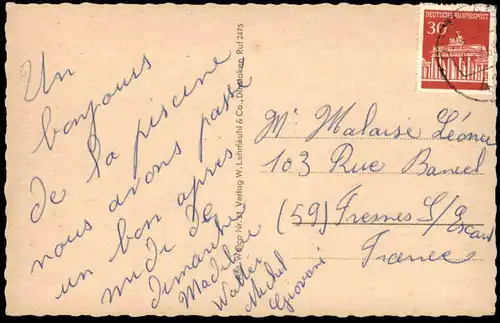 Un
bonjours
de la piscine
nous avons passé
un bon après
midi de
dimanche
Madeleine
Walter
Michel
Giovani
Nr. 31 Verlag W. Lehmkuhl & Co., Dinslaken, Ruf 2475
DEUTSCHE BUNDESPOST
30
Mr Malaise Léonce
103 Rue
(59) Fresnes S/Escaut
France